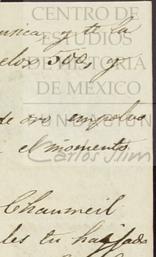 CENTRO DE
ESTUDIOS
DE HISTORIA
DE MÉXICO
FUNDACIÓN
Carlos Slim
y te la
los 500, y
de oro empolvo
el momento
Chaumeil
les tu